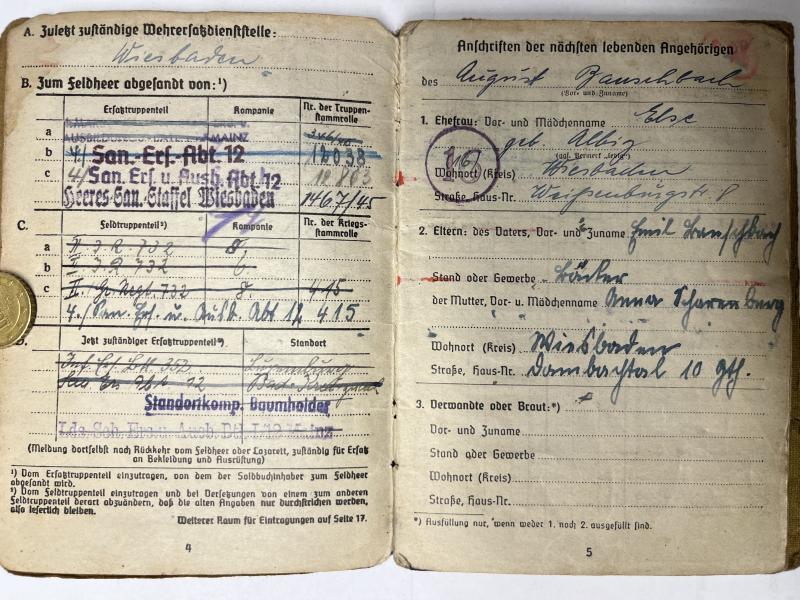 A. Zuletzt zuständige Wehrersatzdienststelle:
Wiesbaden
B. Zum Feldheer abgesandt von:¹)
Ersatztruppenteil Kompanie Nr. der Truppenstammrolle
a MAINZ
b 4/ San.-Ers.-Abt. 12 12038
c 4/ San. Ers. u. Ausb. Abt. 12
Heeres-San.-Staffel Wiesbaden 1467/45
C. Feldtruppenteil²) Kompanie Nr. der Kriegsstammrolle
a J.R. 732 8
b J.R. 732
c II. 732 8. 415
4./San. Ers. u. Ausb. Abt 12 415
D. Jetzt zuständiger Ersatztruppenteil³) Standort
12 Bad
Standortkomp. Baumholder
Mainz
(Meldung dortselbst nach Rückkehr vom Feldheer oder Lazarett, zuständig für Ersatz an Bekleidung und Ausrüstung)
¹) Vom Ersatztruppenteil einzutragen, von dem der Soldbuchinhaber zum Feldheer
abgesandt wird.
²) Vom Feldtruppenteil einzutragen und bei Versetzungen von einem zum anderen
Feldtruppenteil derart abzuändern, daß die alten Angaben nur durchstrichen werden,
also leserlich bleiben.
Weiterer Raum für Eintragungen auf Seite 17.
4
Anschriften der nächsten lebenden Angehörigen
des August Bauschbach
(Vor- und Zuname)
1. Ehefrau: Vor- und Mädchenname Else
geb. Albig
(ggf. Vermerk „ledig“)
Wohnort (Kreis) Wiesbaden
Straße, Haus-Nr. Weißenburgstr. 8
2. Eltern: des Vaters, Vor- und Zuname Emil Bauschbach
Stand oder Gewerbe Bäcker
der Mutter, Vor- u. Mädchenname Anna Scharenberg
Wohnort (Kreis) Wiesbaden
Straße, Haus-Nr. Dambachtal 10 Gth.
3. Verwandte oder Braut:*)
Vor- und Zuname
Stand oder Gewerbe
Wohnort (Kreis)
Straße, Haus-Nr.
*) Ausfüllung nur, wenn weder 1. noch 2. ausgefüllt sind.
5